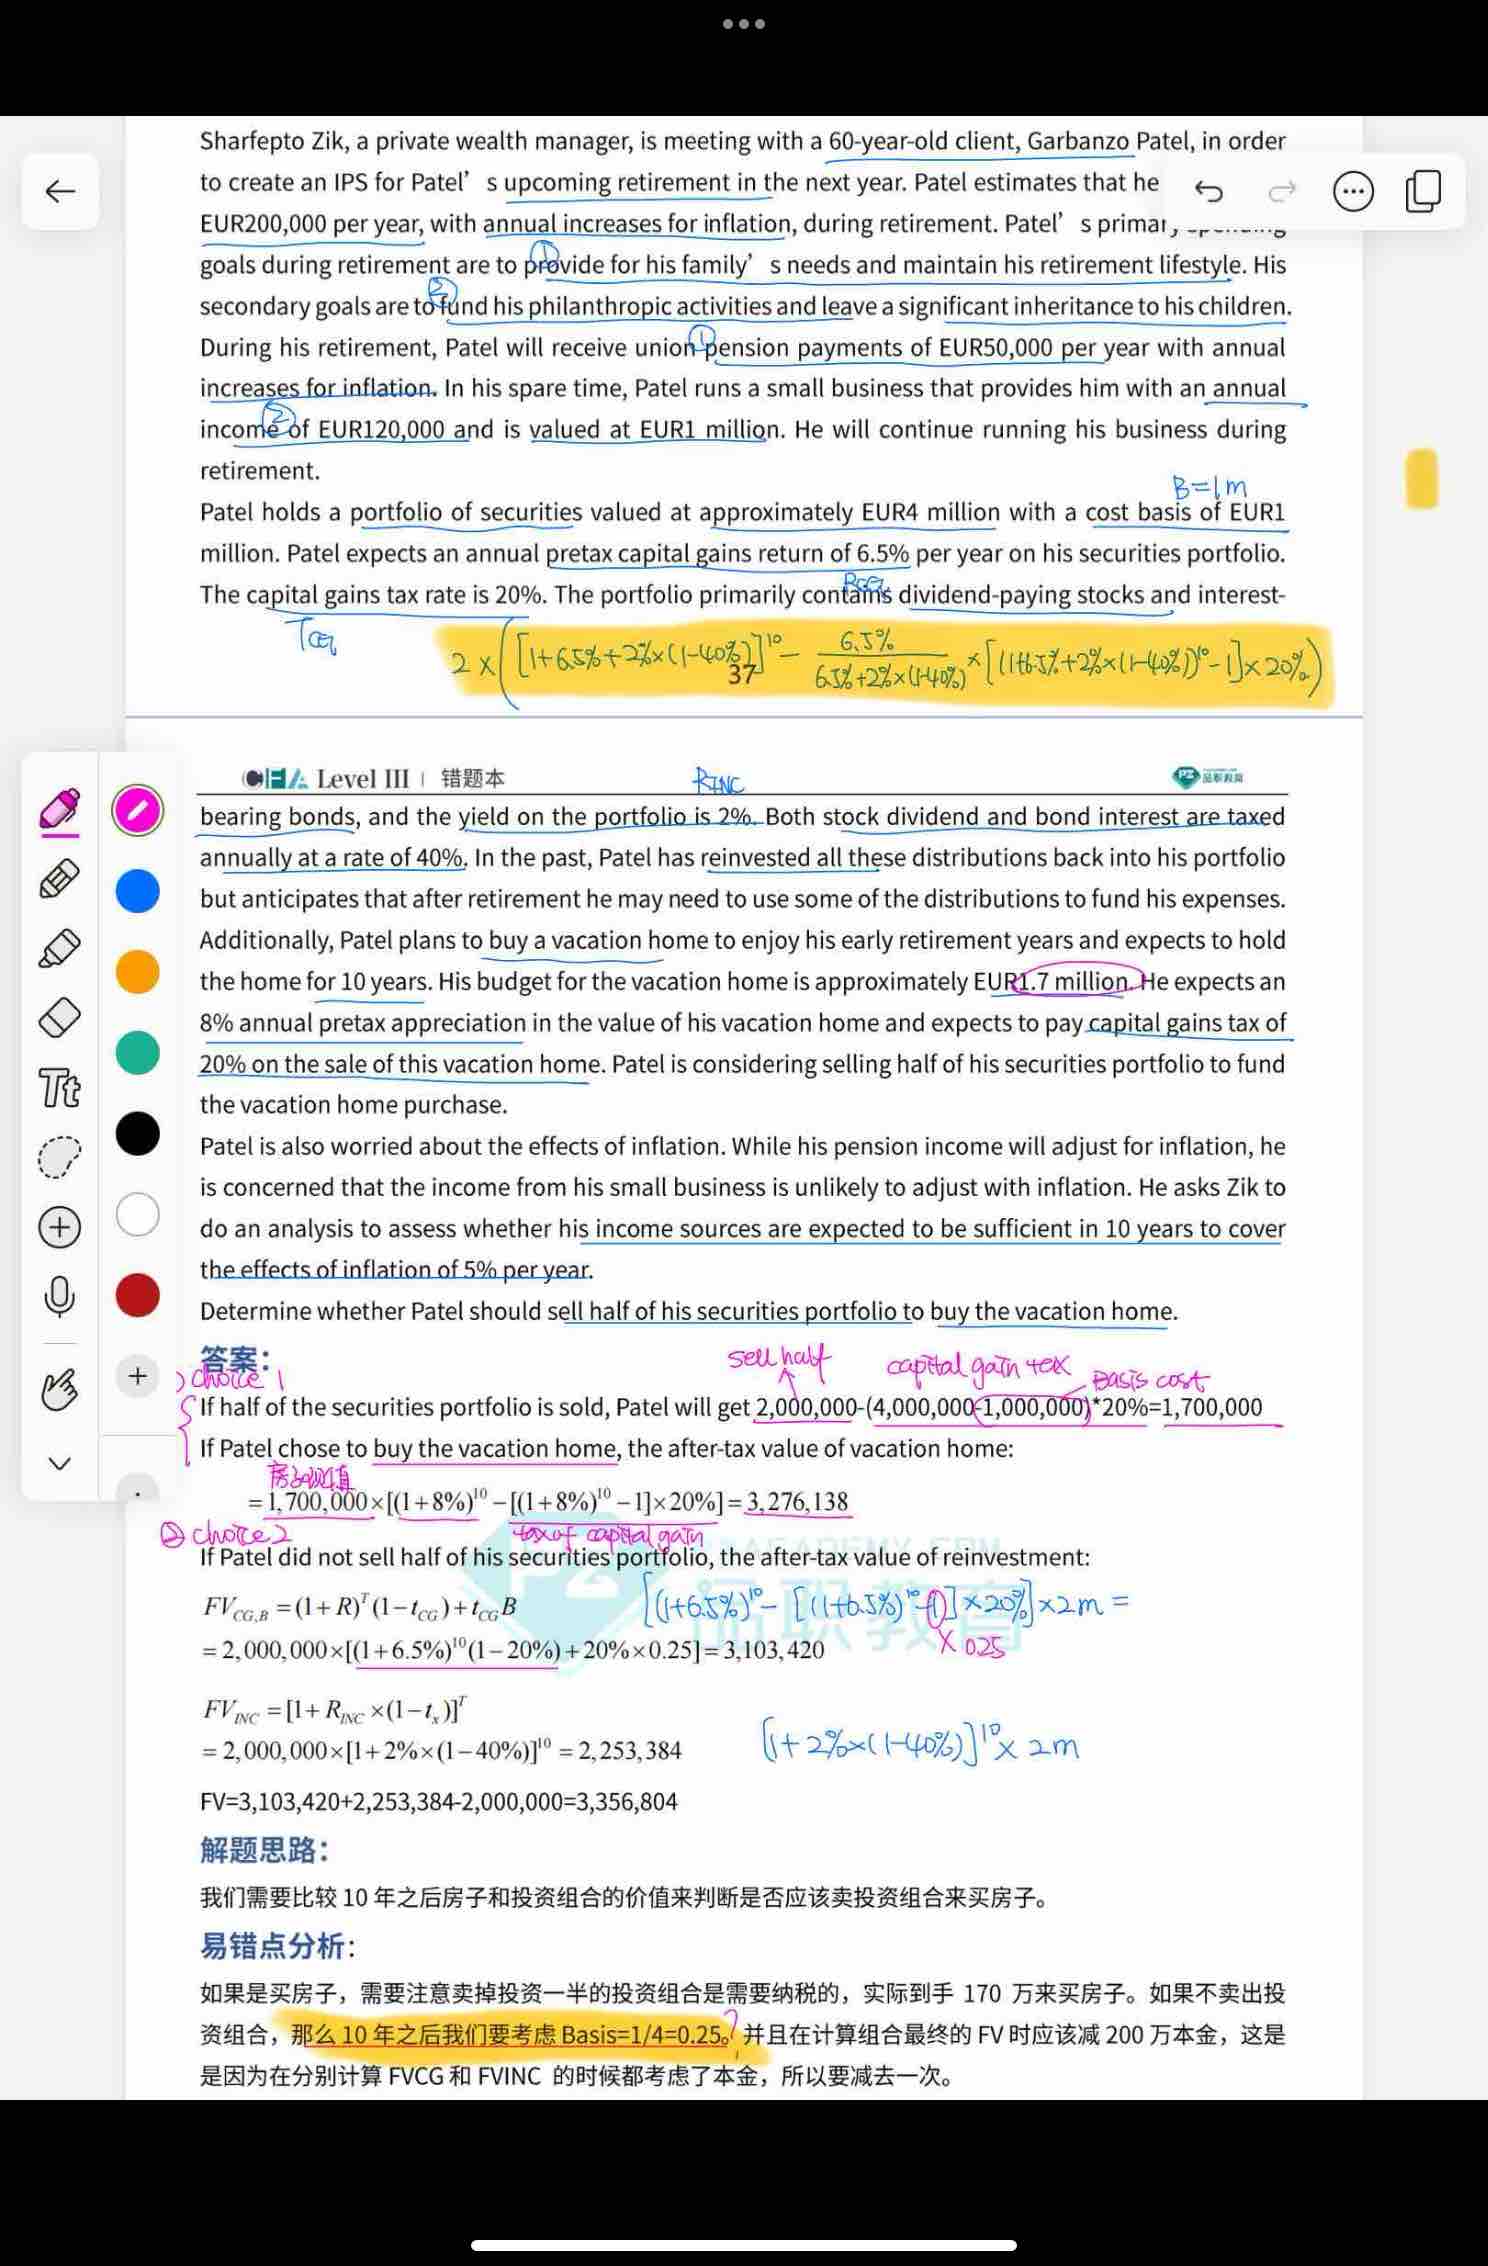 Sharfepto Zik, a private wealth manager, is meeting with a 60-year-old client, Garbanzo Patel, in order
to create an IPS for Patel's upcoming retirement in the next year. Patel estimates that he
EUR200,000 per year, with annual increases for inflation, during retirement. Patel's primary spending
①
goals during retirement are to provide for his family's needs and maintain his retirement lifestyle. His
②
secondary goals are to fund his philanthropic activities and leave a significant inheritance to his children.
①
During his retirement, Patel will receive union pension payments of EUR50,000 per year with annual
increases for inflation. In his spare time, Patel runs a small business that provides him with an annual
②
income of EUR120,000 and is valued at EUR1 million. He will continue running his business during
retirement.
B=1m
Patel holds a portfolio of securities valued at approximately EUR4 million with a cost basis of EUR1
million. Patel expects an annual pretax capital gains return of 6.5% per year on his securities portfolio.
The capital gains tax rate is 20%. The portfolio primarily contains dividend-paying stocks and interest-
2×([1+6.5%+2%×(1-40%)]^10 - 6.5%/(6.5%+2%×(1-40%)) × [(1+6.5%+2%×(1-40%))^10 -1]×20%)
37
CFA Level III | 错题本
RINC
品职教育
bearing bonds, and the yield on the portfolio is 2%. Both stock dividend and bond interest are taxed
annually at a rate of 40%. In the past, Patel has reinvested all these distributions back into his portfolio
but anticipates that after retirement he may need to use some of the distributions to fund his expenses.
Additionally, Patel plans to buy a vacation home to enjoy his early retirement years and expects to hold
the home for 10 years. His budget for the vacation home is approximately EUR1.7 million. He expects an
8% annual pretax appreciation in the value of his vacation home and expects to pay capital gains tax of
20% on the sale of this vacation home. Patel is considering selling half of his securities portfolio to fund
the vacation home purchase.
Patel is also worried about the effects of inflation. While his pension income will adjust for inflation, he
is concerned that the income from his small business is unlikely to adjust with inflation. He asks Zik to
do an analysis to assess whether his income sources are expected to be sufficient in 10 years to cover
the effects of inflation of 5% per year.
Determine whether Patel should sell half of his securities portfolio to buy the vacation home.
答案：
sell half
capital gain tax
Basis cost
choice 1
If half of the securities portfolio is sold, Patel will get 2,000,000-(4,000,000-1,000,000)*20%=1,700,000
If Patel chose to buy the vacation home, the after-tax value of vacation home:
=1,700,000×[(1+8%)^10 −[(1+8%)^10 −1]×20%]=3,276,138
② choice 2
tax of capital gain
If Patel did not sell half of his securities portfolio, the after-tax value of reinvestment:
FV_CG,B =(1+R)^T (1−t_CG)+t_CG B
[(1+6.5%)^10 - [(1+6.5%)^10 -1]×20%]×2m =
=2,000,000×[(1+6.5%)^10 (1−20%)+20%×0.25]=3,103,420
× 0.25
FV_INC =[1+R_INC ×(1−t_x)]^T
=2,000,000×[1+2%×(1−40%)]^10 =2,253,384
[1+2%×(1-40%)]^10 × 2m
FV=3,103,420+2,253,384-2,000,000=3,356,804
解题思路：
我们需要比较 10 年之后房子和投资组合的价值来判断是否应该卖投资组合来买房子。
易错点分析：
如果是买房子，需要注意卖掉投资一半的投资组合是需要纳税的，实际到手 170 万来买房子。如果不卖出投
资组合，那么 10 年之后我们要考虑 Basis=1/4=0.25。?并且在计算组合最终的 FV 时应该减 200 万本金，这是
是因为在分别计算 FVCG 和 FVINC 的时候都考虑了本金，所以要减去一次。
Tt